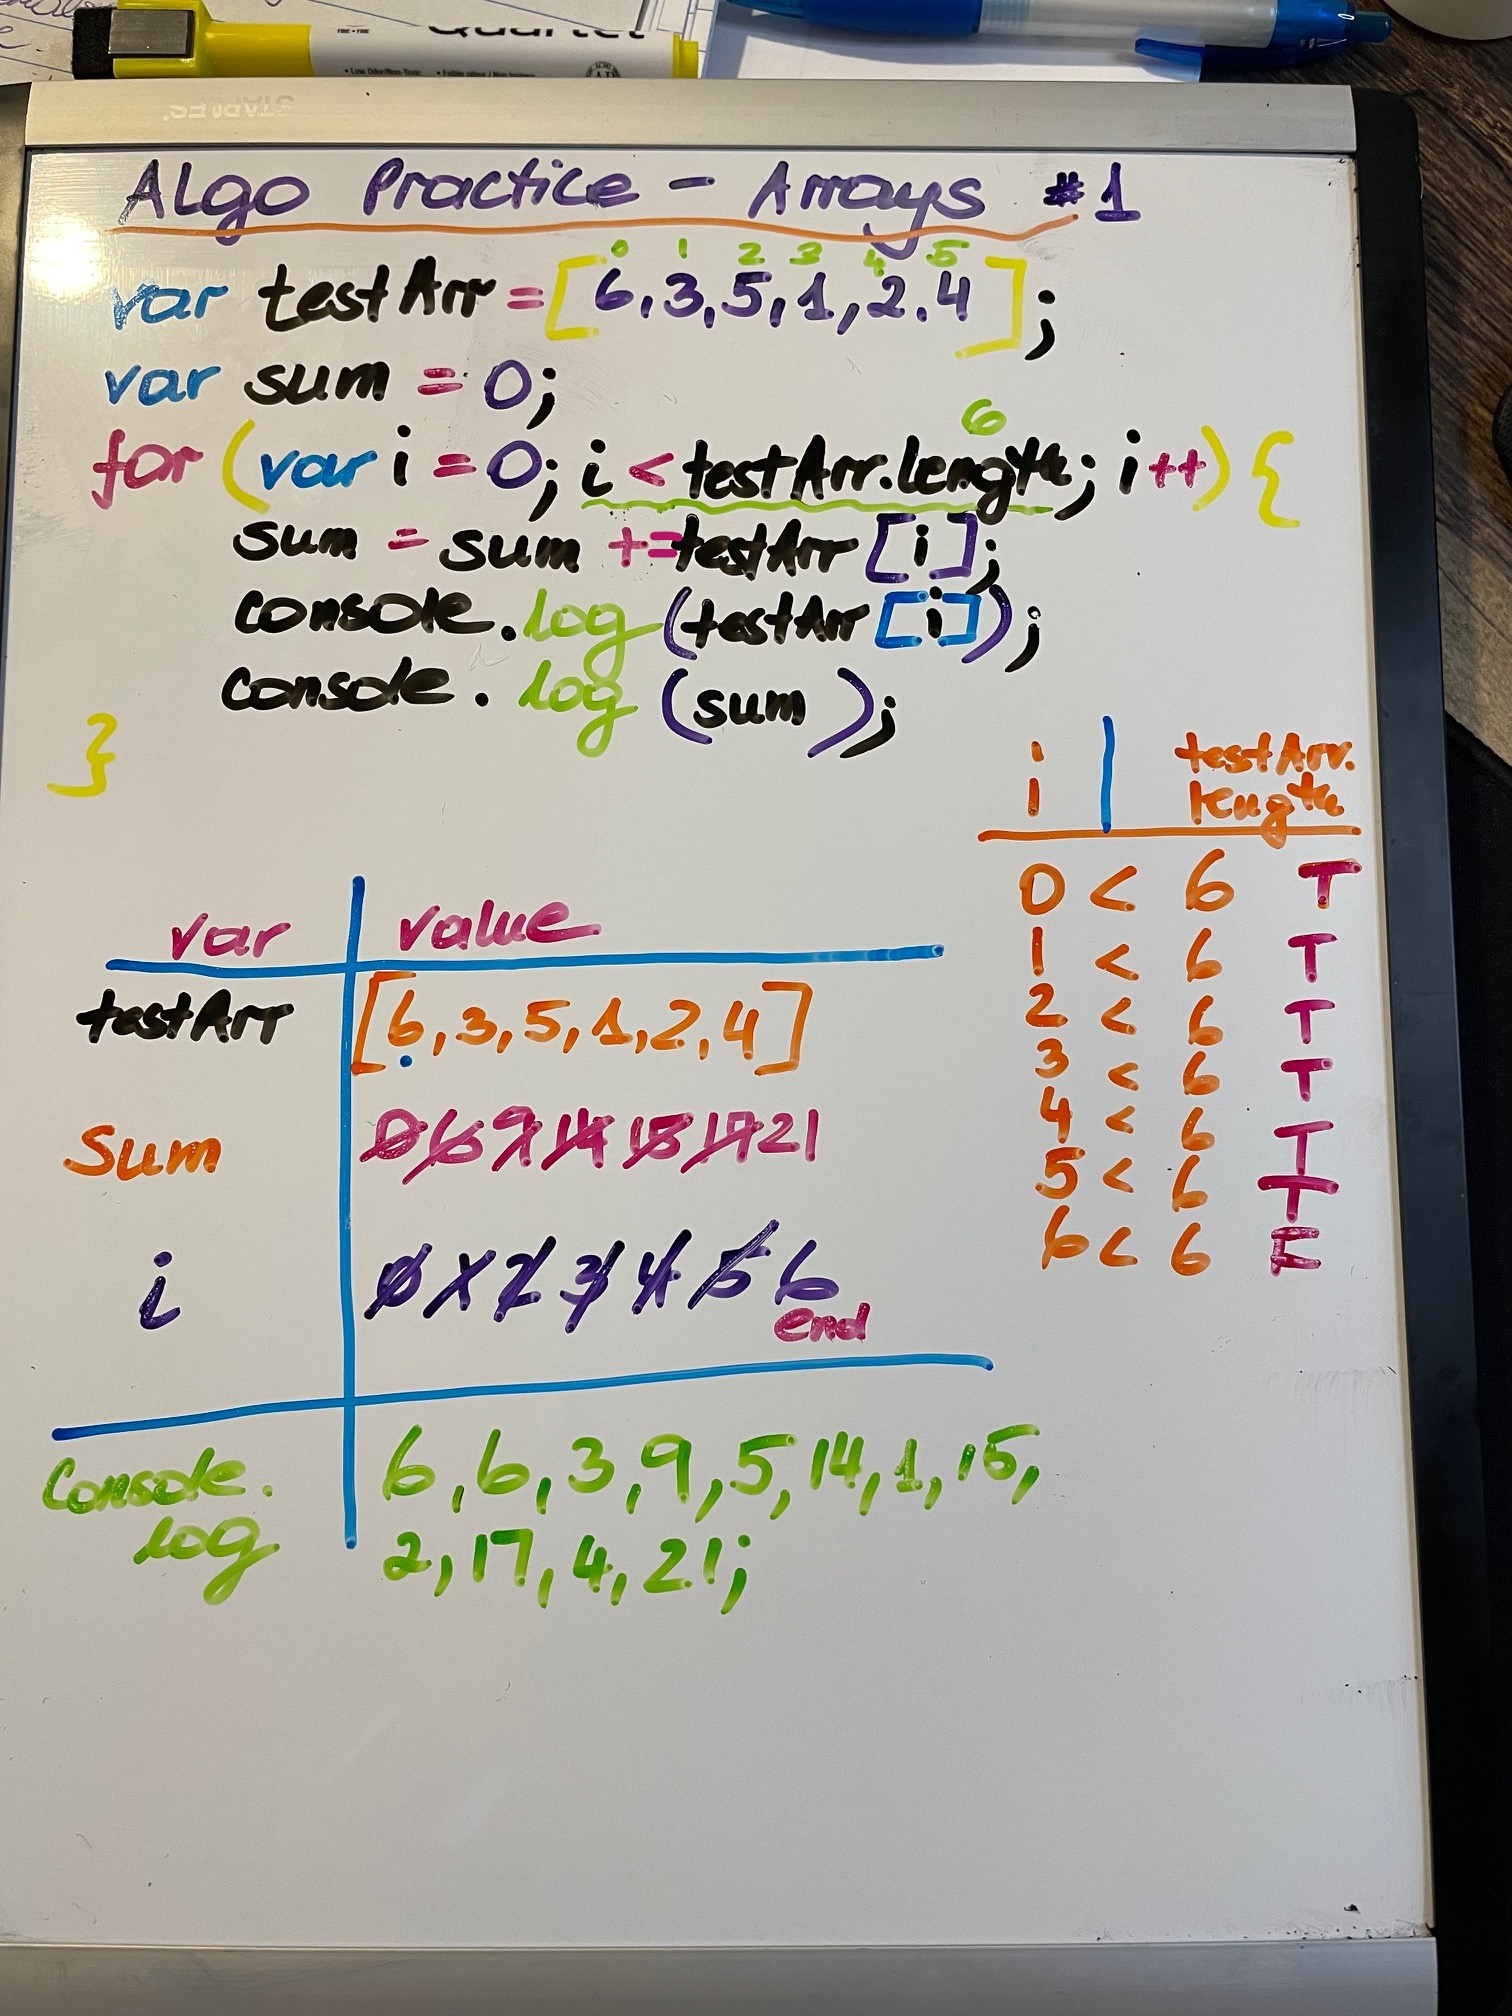 Quartet
• Low Odor/Non-Toxic
STAPLES.
Algo Practice - Arrays #1
0 1 2 3 4 5
var testArr = [6,3,5,1,2,4];
var sum = 0;
6
for (var i = 0; i < testArr.length; i++) {
sum = sum += testArr [i];
console.log (testArr [i]);
console. log (sum);
}
i | testArr.
length
0 < 6 T
1 < 6 T
2 < 6 T
3 < 6 T
4 < 6 T
5 < 6 T
6 < 6 F
var value
testArr [6,3,5,1,2,4]
Sum 0 6 9 14 15 17 21
i 0 1 2 3 4 5 6
end
Console. 6,6,3,9,5,14,1,15,
log 2,17,4,21;